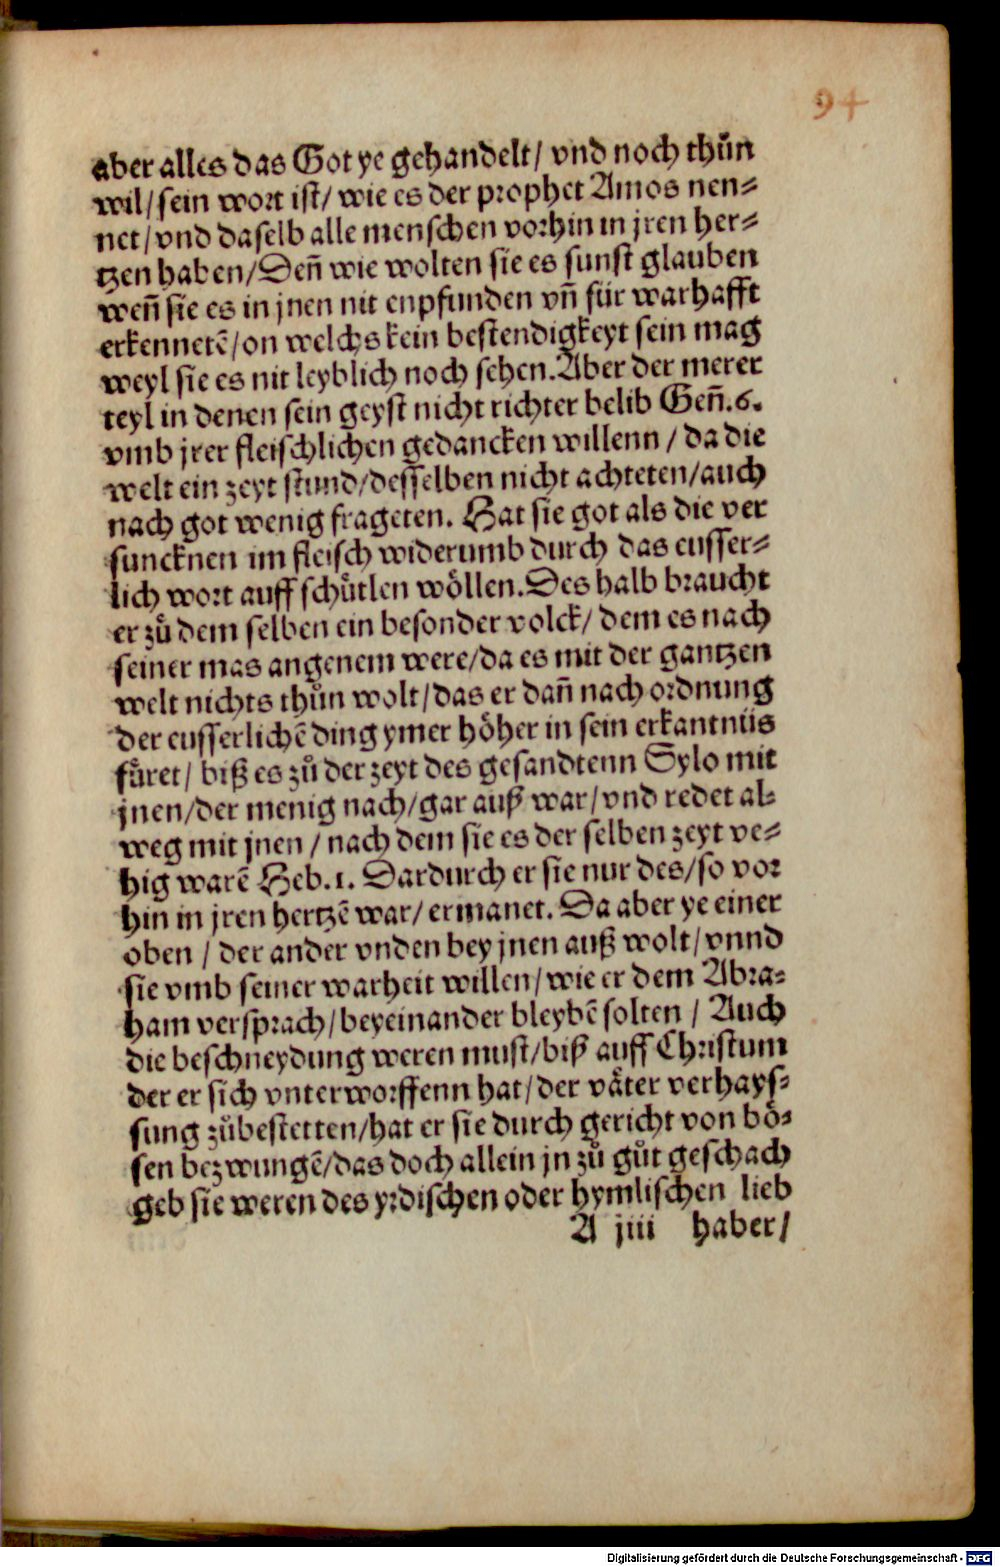 94
aber alles das Got ye gehandelt/ vnd noch thůn
wil/ sein wort ist/ wie es der prophet Amos nen⸗
net/ vnd daselb alle menschen vorhin in jren her⸗
tzen haben/ Deñ wie wolten sie es sunst glauben
weñ sie es in jnen nit enpfunden vñ für warhafft
erkennetẽ/ on welchs kein bestendigkeyt sein mag
weyl sie es nit leyblich noch sehen. Aber der merer
teyl in denen sein geyst nicht richter belib Geñ. 6.
vmb jrer fleischlichen gedancken willenn / da die
welt ein zeyt stund/ desselben nicht achteten/ auch
nach got wenig frageten. Hat sie got als die ver
suncknen im fleisch widerumb durch das eusser⸗
lich wort auff schůtlen wöllen. Des halb braucht
er zů dem selben ein besonder volck/ dem es nach
seiner mas angenem were/ da es mit der gantzen
welt nichts thůn wolt/ das er dañ nach ordnung
der eusserlichẽ ding ymer höher in sein erkantnüs
fůret/ biß es zů der zeyt des gesandtenn Sylo mit
jnen/ der menig nach/ gar auß war/ vnd redet al⸗
weg mit jnen / nach dem sie es der selben zeyt ve⸗
hig warẽ Heb. 1. Dardurch er sie nur des/ so vor
hin in jren hertzẽ war/ ermanet. Da aber ye einer
oben / der ander vnden bey jnen auß wolt/ vnnd
sie vmb seiner warheit willen/ wie er dem Abra⸗
ham versprach/ beyeinander bleybẽ solten / Auch
die beschneydung weren must/ biß auff Christum
der er sich vnterworffenn hat/ der våter verhays⸗
sung zůbestetten/ hat er sie durch gericht von bö⸗
sen bezwungẽ/ das doch allein jn zů gůt geschach
geb sie weren des yrdischen oder hymlischen lieb
A jiii haber/
Digitalisierung gefördert durch die Deutsche Forschungsgemeinschaft - DFG